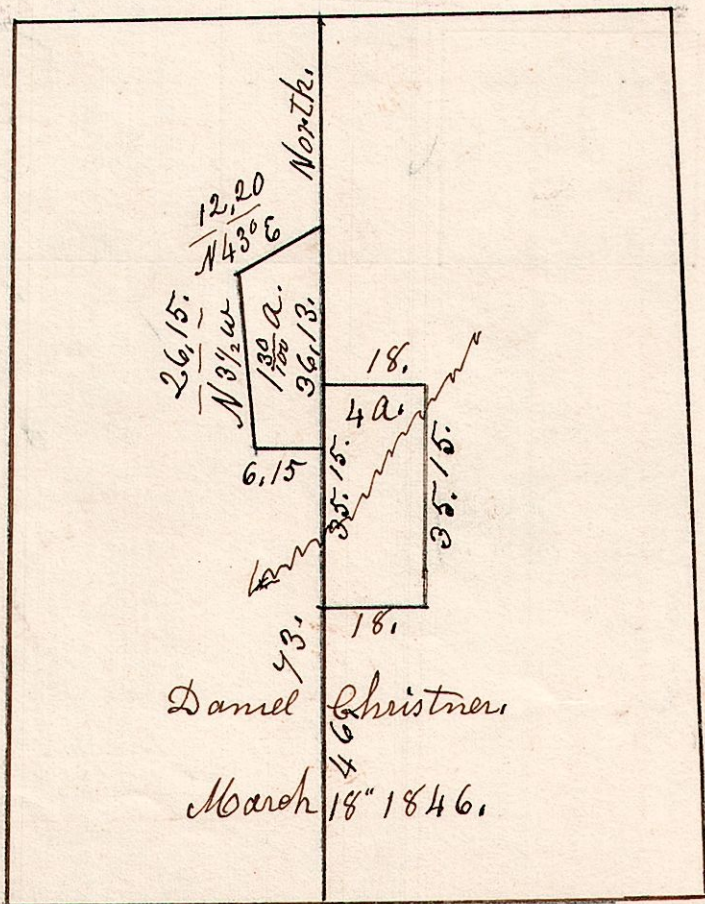 North.
12,20
N43° E
26,15.
N 3½ W
1 30/100 a.
36,13.
18.
4 a.
6,15
35.15.
35.15.
18.
73.
Daniel Christner.
46
March 18" 1846.